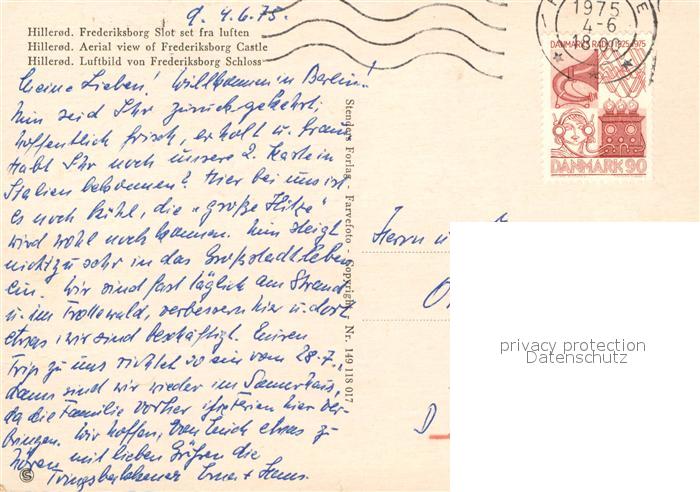 d. 4.6.75.
Hillerød. Frederiksborg Slot set fra luften
Hillerød. Aerial view of Frederiksborg Castle
Hillerød. Luftbild von Frederiksborg Schloss
Meine Lieben! Willkommen in Berlin!
Nun seid Ihr zurückgekehrt,
hoffentlich frisch, erholt u. braun
Habt Ihr noch unsere 2. Karte in
Italien bekommen? Hier bei uns ist
es noch kühl, die "große Hitze"
wird wohl noch kommen. Nun steigt
nicht zu sehr in das Großstadtleben
ein. Wir sind fast täglich am Strand
u. im Trollewald, verbessern hier u. dort
etwas, wir sind beschäftigt. Euren
Trip zu uns richtet so ein vom 28.7.,
dann sind wir wieder im Sommerhaus,
da die Familie vorher ihre Ferien hier ver-
bringen. Wir hoffen, von Euch etwas zu
hören mit lieben Grüßen die
Erna + Hans.
Stenders Forlag Farvefoto - Copyright Nr. 149 118 017
1975
4-6
18.00
DANMARKS RADIO 1925-1975
DANMARK 90
Herrn u.
D
privacy protection
Datenschutz